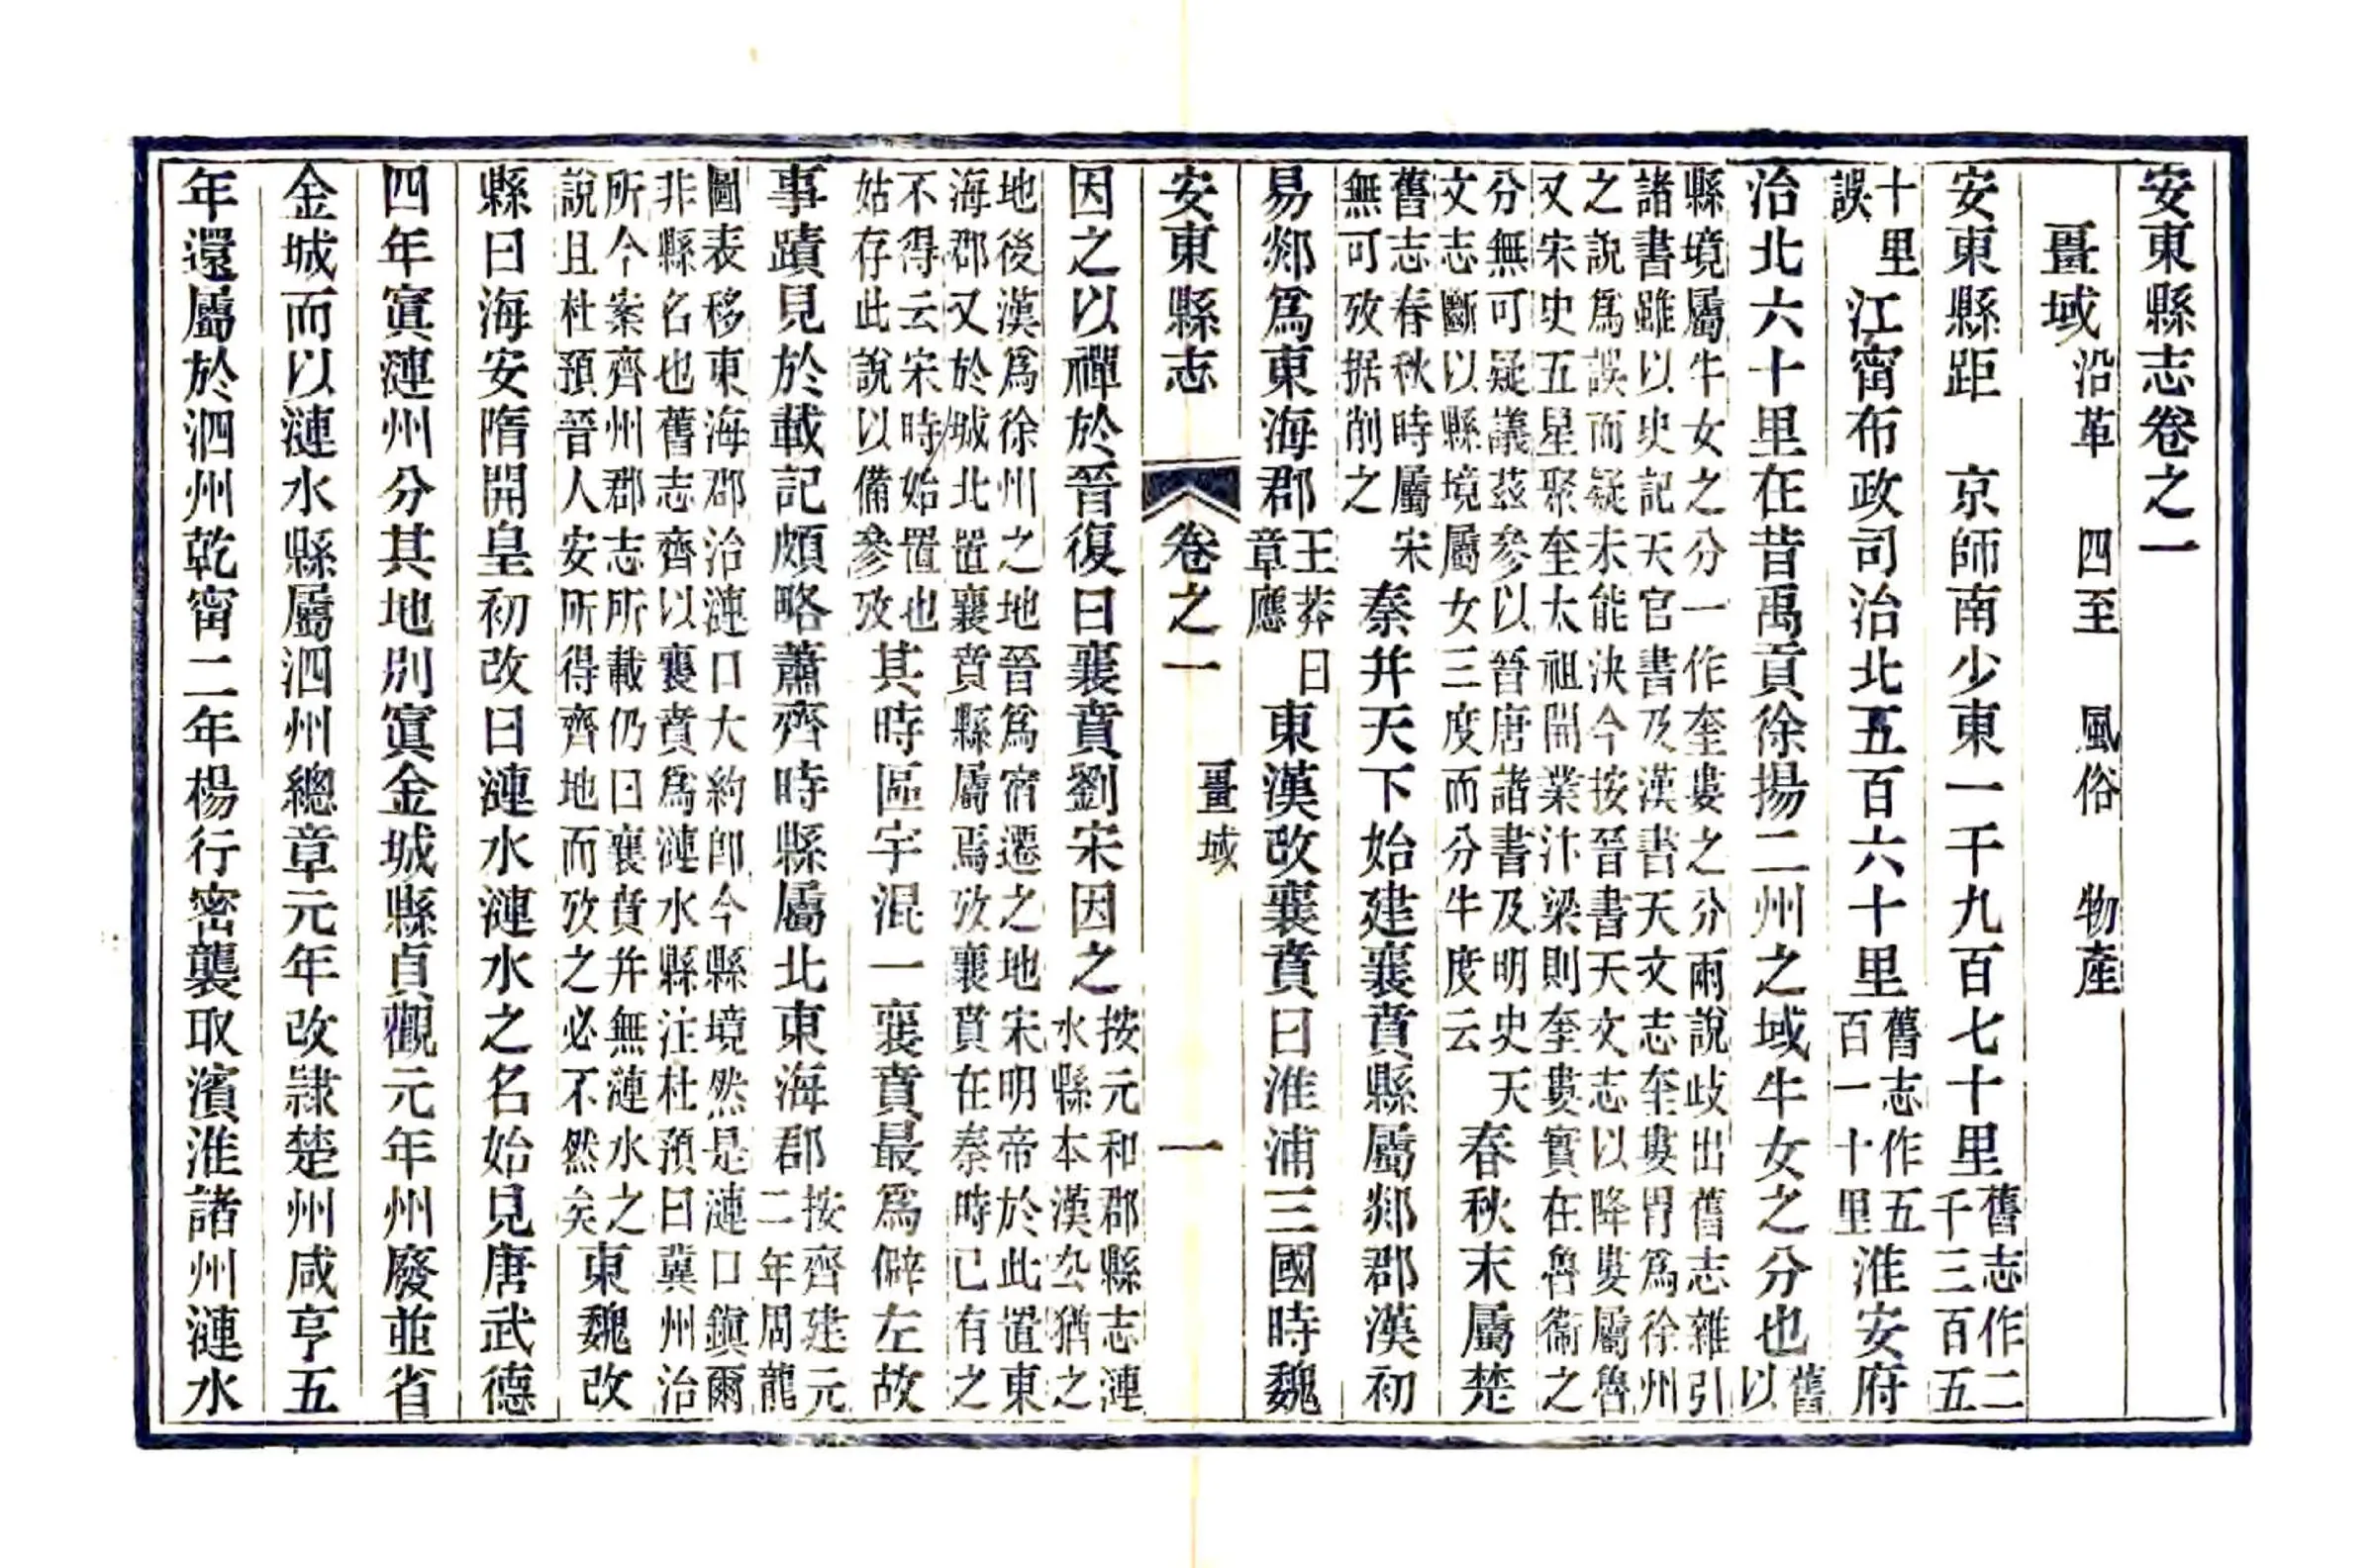 安東縣志卷之一
畺域 沿革 四至 風俗 物產
安東縣距 京師南少東一千九百七十里舊志作二千三百五
十里誤江甯布政司治北五百六十里舊志作五百一十里淮安府
治北六十里在昔禹貢徐揚二州之域牛女之分也舊以
縣境屬牛女之分一作奎婁之分兩說歧出舊志雜引
諸書雖以史記天官書及漢書天文志奎婁胃爲徐州
之說爲誤而疑未能決今按晉書天文志以降婁屬魯
又宋史五星聚奎太祖開業汴梁則奎婁實在魯衞之
分無可疑議茲參以晉唐諸書及明史天
文志斷以縣境屬女三度而分牛度云春秋末屬楚
舊志春秋時屬宋無可攷据削之秦并天下始建襄賁縣屬郯郡漢初
易郯爲東海郡王莽曰章應東漢改襄賁曰淮浦三國時魏
安東縣志 卷之一 畺域 一
因之以禪於晉復曰襄賁劉宋因之按元和郡縣志漣水縣本漢厹猶之
地後漢爲徐州之地晉爲宿遷之地宋明帝於此置東
海郡又於城北置襄賁縣屬焉攷襄賁在秦時已有之
不得云宋時始置也姑存此說以備參攷其時區宇混一襄賁最爲僻左故
事蹟見於載記頗略蕭齊時縣屬北東海郡按齊建元二年周龍
圖表移東海郡治漣口大約卽今縣境然是漣口鎭爾
非縣名也舊志齊以襄賁爲漣水縣注杜預曰冀州治
所今案齊州郡志所載仍曰襄賁并無漣水之
說且杜預晉人安所得齊地而攷之必不然矣東魏改
縣曰海安隋開皇初改曰漣水漣水之名始見唐武德
四年寘漣州分其地別寘金城縣貞觀元年州廢並省
金城而以漣水縣屬泗州總章元年改隸楚州咸亨五
年還屬於泗州乾甯二年楊行密襲取濱淮諸州漣水